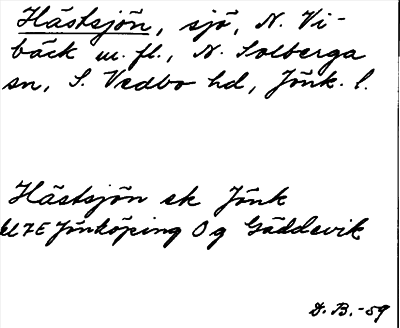 Hästsjön, sjö, N. Vi-
bäck m. fl., N. Solberga
sn, S. Vedbo hd, Jönk. l.
Hästsjön ek Jönk
7E Jönköping O g Gäddevik
D. B. -59